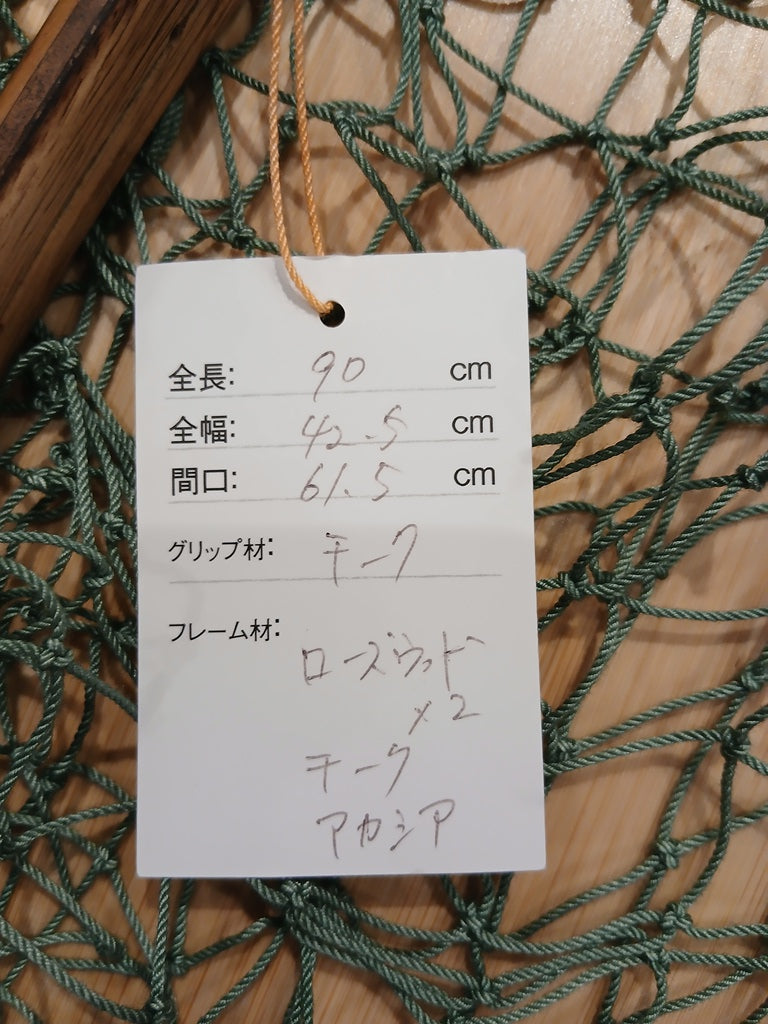 全長: 90 cm
全幅: 42.5 cm
間口: 61.5 cm
グリップ材: チーク
フレーム材:
ローズウッド
×2
チーク
アカシア